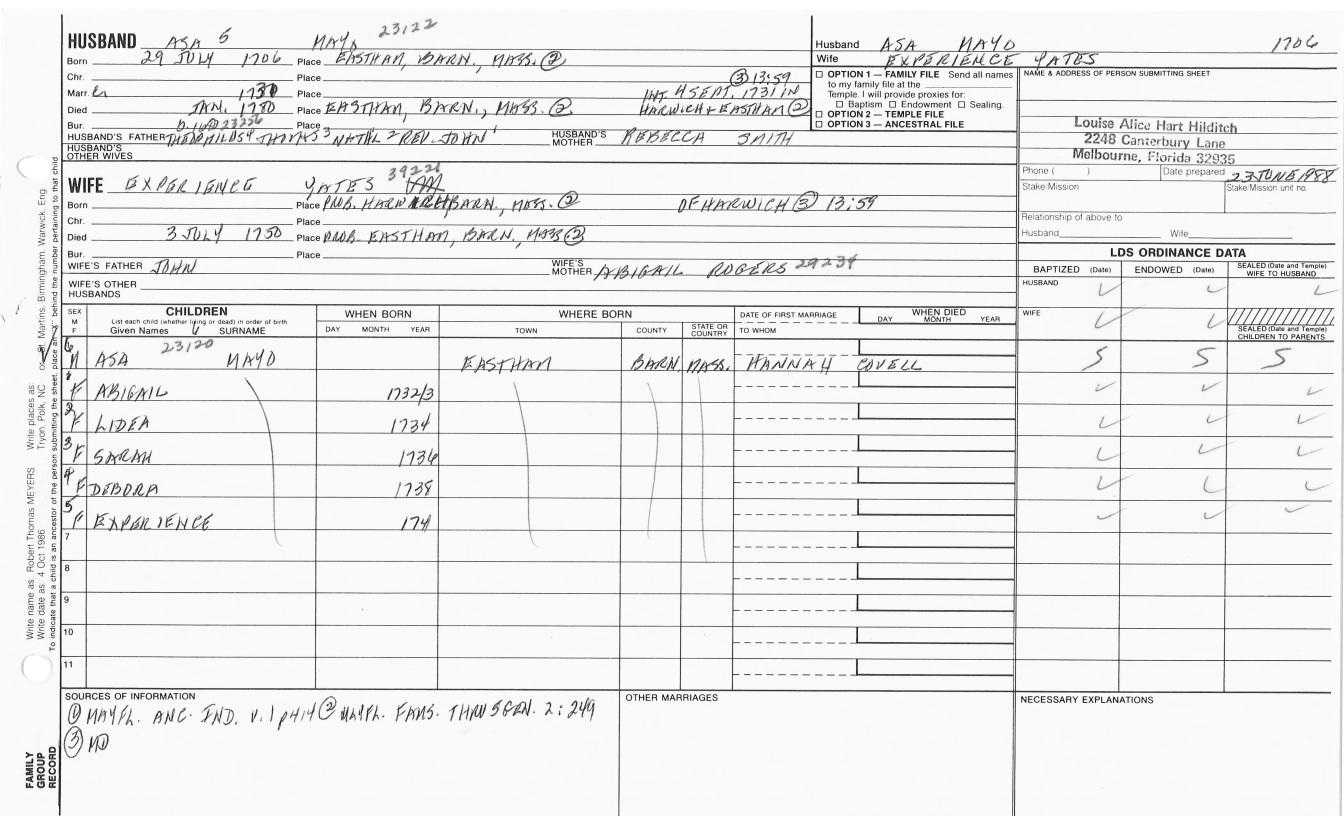 HUSBAND ASA 5 MAYO 23122
Born 29 JULY 1706 Place EASTHAM, BARN., MASS. ②
Chr. Place ③ 13:59
Marr. 1731 Place INT. 4 SEPT. 1731 IN
Died JAN. 1780 Place EASTHAM, BARN., MASS. ② HARWICH + EASTHAM ②
Bur. Place
HUSBAND'S FATHER THEOPHILUS 4 THOMAS 3 NATH'L 2 REV. JOHN 1 HUSBAND'S MOTHER REBECCA SMITH
HUSBAND'S OTHER WIVES
WIFE EXPERIENCE YATES
Born Place PROB. HARWICH, BARN., MASS. ② OF HARWICH ③ 13:59
Chr. Place
Died 3 JULY 1750 Place PROB. EASTHAM, BARN., MASS ②
Bur. Place
WIFE'S FATHER JOHN WIFE'S MOTHER ABIGAIL ROGERS 29234
WIFE'S OTHER HUSBANDS
Husband ASA MAYO 1706
Wife EXPERIENCE YATES
OPTION 1 — FAMILY FILE Send all names
to my family file at the
Temple. I will provide proxies for:
Baptism Endowment Sealing.
OPTION 2 — TEMPLE FILE
OPTION 3 — ANCESTRAL FILE
NAME & ADDRESS OF PERSON SUBMITTING SHEET
Louise Alice Hart Hilditch
2248 Canterbury Lane
Melbourne, Florida 32935
Phone ( ) Date prepared 23 JUNE 1988
Stake/Mission Stake/Mission unit no.
Relationship of above to
Husband Wife
LDS ORDINANCE DATA
BAPTIZED (Date) ENDOWED (Date) SEALED (Date and Temple) WIFE TO HUSBAND
HUSBAND
WIFE
SEALED (Date and Temple) CHILDREN TO PARENTS
SEX M F
CHILDREN
List each child (whether living or dead) in order of birth
Given Names SURNAME
WHEN BORN
DAY MONTH YEAR
WHERE BORN
TOWN COUNTY STATE OR COUNTRY
DATE OF FIRST MARRIAGE
TO WHOM
WHEN DIED
DAY MONTH YEAR
23120
6 M ASA MAYO EASTHAM BARN. MASS. HANNAH COVELL S S S
1 F ABIGAIL 1732/3
2 F LIDEA 1734
3 F SARAH 1736
4 F DEBORA 1738
5 F EXPERIENCE 1741
7
8
9
10
11
SOURCES OF INFORMATION
① MAYFL. ANC. IND. V.1 p414 ② MAYFL. FAMS. THRU 5 GEN. 2:249
③ MD
OTHER MARRIAGES
NECESSARY EXPLANATIONS
Write name as Robert Thomas MEYERS Write places as Tryon, Polk, NC
Write date as 4 Oct 1986
FAMILY GROUP RECORD